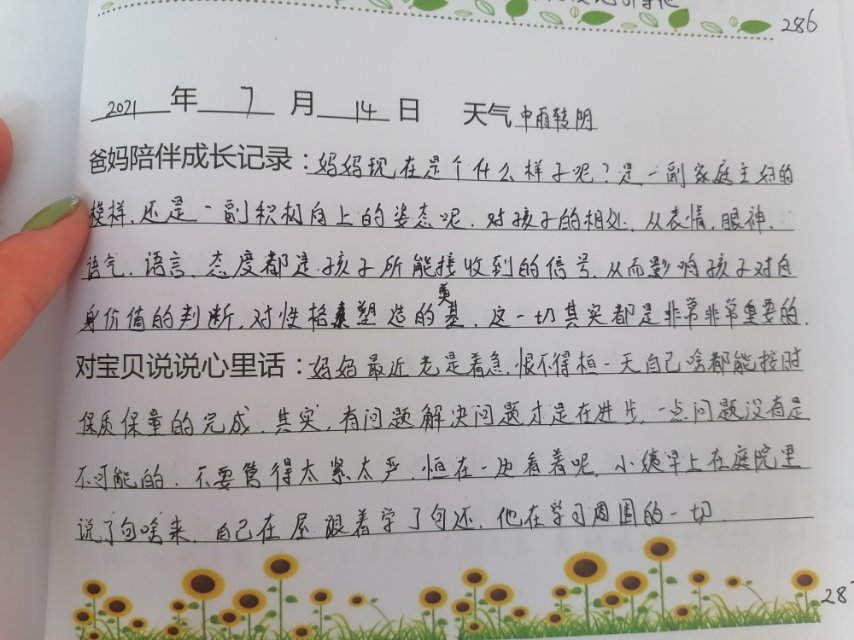 286
2021 年 7 月 14 日 天气 中雨转阴
爸妈陪伴成长记录：妈妈现在是个什么样子呢？是一副家庭主妇的
模样，还是一副积极向上的姿态呢，对孩子的相处，从表情，眼神，
语气，语言，态度都是孩子所能接收到的信号，从而影响孩子对自
身价值的判断，对性格塑造的奠基，这一切其实都是非常非常重要的，
对宝贝说说心里话：妈妈最近老是着急，恨不得 一天自己啥都能按时
保质保量的完成，其实，有问题解决问题才是在进步，一点问题没有是
不可能的，不要管得太紧太严，恒在一边看着呢，小 早上在庭院里
说了句啥来，自己在屋跟着学了句还，他在学习周围的一切
287